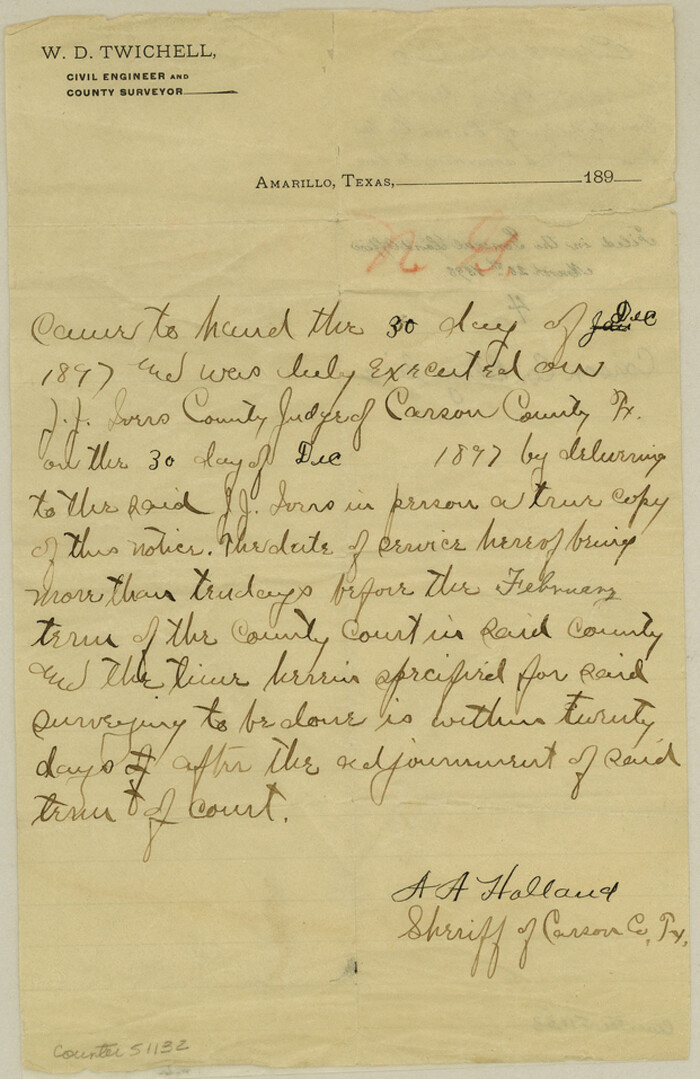 W. D. TWICHELL,
CIVIL ENGINEER AND
COUNTY SURVEYOR
AMARILLO, TEXAS, 189
Filed in the General Land Office
March 26th 1898
Came to hand the 30 day of Jan Dec
1897 and was duly executed on
J. J. Ivers County Judge of Carson County Tx.
on the 30 day of Dec 1897 by delivering
to the said J. J. Ivers in person a true copy
of this notice. The date of service hereof being
more than ten days before the February
term of the County Court in said County
and the time herein specified for said
surveying to be done is within twenty
days of after the adjournment of said
term of court.
A A Holland
Sheriff of Carson Co, Tx.
Counter 51132